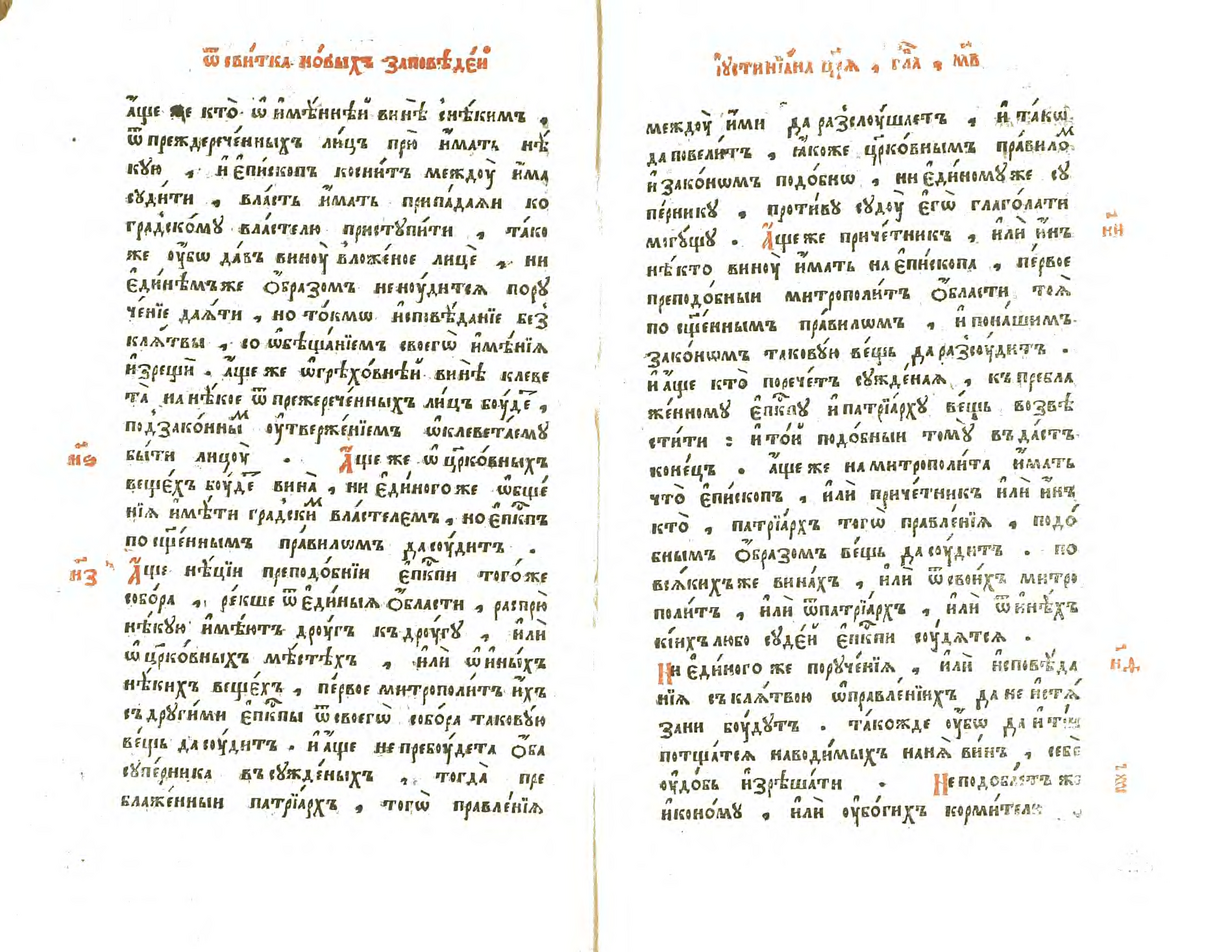 ѿ сви́тка но́выхъ за́повѣде́й
а҆́ще же кто̀ ѡ҆ и҆мѣ́ннѣй винѣ̀ с̾нѣ́кимъ ,
ѿ преждерече́нныхъ ли́цъ прю̀ и҆́мать нѣ́
кую , и҆ є҆пи́скопъ косни́тъ междоу̀ и҆́ма
суди́ти , вла́сть и҆́мать припа́даѧи ко
гра́дскому вла́стелю приступи́ти , та́ко
же оу҆́бѡ да́въ виноу̀ вложе́ное лицѐ , ни
є҆ди́нѣмъже ѻ҆́бразомъ неноу́дитсѧ пору
че́нїе даѧ́ти , но то́кмѡ и҆сповѣ́данїе без̾
клѧ́твы , со ѡ҆бѣща́нїемъ своегѡ̀ и҆мѣ́нїѧ
и҆зрещѝ . а҆́ще же ѡ҆грѣхо́внѣй винѣ̀ клеве
та̀ на нѣ́кое ѿ прежерече́нныхъ ли́цъ боу́де ,
подзако́нны́м оу҆тверже́нїемъ ѡ҆клевета́ему
бы́ти лицоу̀ . А҆́ще же ѡ҆ цр҃ко́вныхъ
веще́хъ боу́де вина̀ , ни є҆ди́ногоже ѡ҆бще́
нїѧ и҆мѣ́ти гра́дским вла́стелемъ , но є҆пⷭ҇кпъ
по сщ҃е́ннымъ пра́вилѡмъ да соу́дитъ .
А҆́ще нѣ́цїи преподо́бнїи є҆пⷭ҇кпи того́же
собо́ра , ре́кше ѿ є҆ди́ныѧ ѻ҆́бласти , ра́спрю
нѣ́кую и҆мѣ́ютъ дроу́гъ къ дроу́гу , и҆лѝ
ѡ҆ цр҃ко́вныхъ мѣ́стѣхъ , и҆лѝ ѡ҆ и҆ны́хъ
нѣ́кихъ веще́хъ , пе́рвое митрополи́тъ и҆́хъ
съ други́ми є҆пⷭ҇кпы ѿ своегѡ̀ собо́ра такову́ю
ве́щь да соу́дитъ . и҆ а҆́ще не пребоу́дета ѻ҆́ба
супе́рника въ сужде́ныхъ , тогда̀ пре
блаже́нныи патрїа́рхъ , тогѡ̀ правле́нїѧ
н҃ѕ
н҃з
і҆устинїа́на цр҃ѧ , гла҃ , м҃в
междоу̀ и҆́ми да разслоу́шаетъ , и҆ та́кѡ
да повели́тъ , ꙗ҆́коже цр҃ко́внымъ пра́виломъ
и҆ зако́нѡмъ подо́бнѡ , ни є҆ди́ному же су
пе́рнику , проти́ву судоу̀ є҆гѡ̀ глаго́лати
могу́щу . А҆́ще же приче́тникъ , и҆лѝ и҆́нъ
нѣ́кто виноу̀ и҆́мать на є҆пи́скопа , пе́рвое
преподо́бныи митрополи́тъ ѻ҆́бласти тоѧ̀
по сщ҃е́ннымъ пра́вилѡмъ , и҆ пона́шимъ
зако́нѡмъ такову́ю ве́щь да разсоу́дитъ .
и҆ а҆́ще кто̀ порече́тъ сужде́наѧ , къ пребла
же́нному є҆пⷭ҇кпу и҆ патрїа́рху ве́щь возвѣ
сти́ти : и҆ то́й подо́бныи тому̀ въда́стъ
коне́цъ . а҆́ще же на митрополи́та и҆́мать
что̀ є҆пи́скопъ , и҆лѝ приче́тникъ и҆лѝ и҆́нъ
кто̀ , патрїа́рхъ тогѡ̀ правле́нїѧ , подо́
бнымъ ѻ҆́бразомъ ве́щь да соу́дитъ . по
всѧ́кихъ же вина́хъ , и҆лѝ ѿ свои́хъ митро
поли́тъ , и҆лѝ ѿ патрїа́рхъ , и҆лѝ ѿ и҆нѣ́хъ
кі́ихъ любо суде́й є҆пⷭ҇кпи соу́дѧтсѧ .
Ни є҆ди́ного же поруче́нїѧ , и҆лѝ и҆сповѣ́да
нїѧ съ клѧ́твою ѡ҆правле́нїихъ да не и҆стѧ́
зани боу́дутъ . та́кожде оу҆́бѡ да и҆ ті́и
потща́тсѧ наводи́мыхъ на нѧ̀ ви́нъ , себѐ
оу҆до́бь и҆зрѣша́ти . Не подоба́етъ же
и҆коно́му , и҆лѝ оу҆бо́гихъ корми́телю
н҃и
н҃д